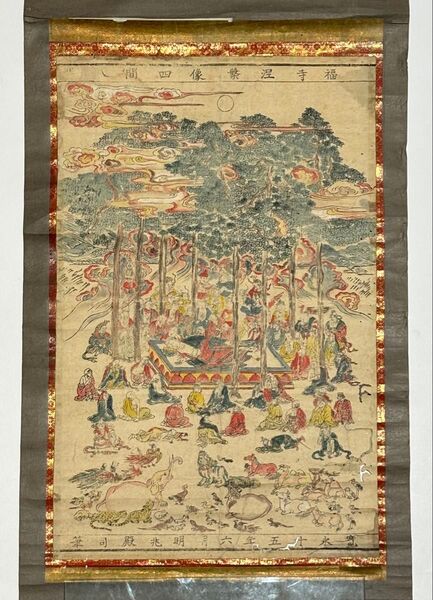 福寺涅槃像四間
永十五年六月明兆殿司筆